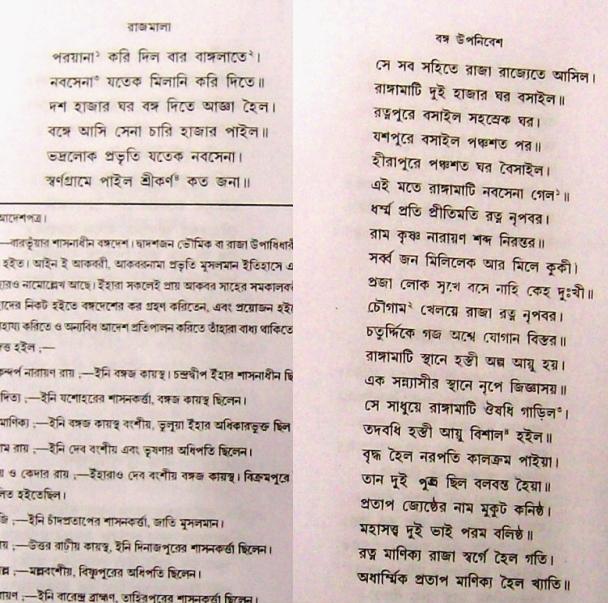 রাজমালা
পরয়ানা১ করি দিল বার বাঙ্গলাতে২।
নবসেনা৩ যতেক মিলানি করি দিতে॥
দশ হাজার ঘর বঙ্গ দিতে আজ্ঞা হৈল।
বঙ্গে আসি সেনা চারি হাজার পাইল॥
ভদ্রলোক প্রভৃতি যতেক নবসেনা।
স্বর্ণগ্রামে পাইল শ্রীকর্ণ৪ কত জনা॥
আদেশপত্র।
—বারভূঁয়ার শাসনাধীন বঙ্গদেশ। দ্বাদশজন ভৌমিক বা রাজা উপাধিধারী
হইত। আইন ই আকবরী, আকবরনামা প্রভৃতি মুসলমান ইতিহাসে এ
হারও নামোল্লেখ আছে। ইহারা সকলেই প্রায় আকবর সাহের সমকালব
হাদের নিকট হইতে বঙ্গদেশের কর গ্রহণ করিতেন, এবং প্রয়োজন হই
হায্য করিতে ও অন্যবিধ আদেশ প্রতিপালন করিতে তাঁহারা বাধ্য থাকিতে
ত্ত হইল ;—
কন্দর্প নারায়ণ রায় ;—ইনি বঙ্গজ কায়স্থ। চন্দ্রদ্বীপ ইঁহার শাসনাধীন ছি
দিত্য ;—ইনি যশোহরের শাসনকর্ত্তা, বঙ্গজ কায়স্থ ছিলেন।
মাণিক্য ;—ইনি বঙ্গজ কায়স্থ বংশীয়, ভুলুয়া ইহার অধিকারভুক্ত ছিল
রাম রায় ;—ইনি দেব বংশীয় এবং ভূষণার অধিপতি ছিলেন।
য় ও কেদার রায় ;—ইহারাও দেব বংশীয় বঙ্গজ কায়স্থ। বিক্রমপুরে
লিত হইতেছিল।
জি ;—ইনি চাঁদপ্রতাপের শাসনকর্ত্তা, জাতি মুসলমান।
য় ;—উত্তর রাঢ়ীয় কায়স্থ, ইনি দিনাজপুরের শাসনকর্ত্তা ছিলেন।
ল্ল ;—মল্লবংশীয়, বিষ্ণুপুরের অধিপতি ছিলেন।
রায়ণ ;—ইনি বারেন্দ্র ব্রাহ্মণ, তাহিরপুরের শাসনকর্ত্তা ছিলেন।
বঙ্গ উপনিবেশ
সে সব সহিতে রাজা রাজ্যেতে আসিল।
রাঙ্গামাটি দুই হাজার ঘর বসাইল॥
রত্নপুরে বসাইল সহস্রেক ঘর।
যশপুরে বসাইল পঞ্চশত পর॥
হীরাপুরে পঞ্চশত ঘর বৈসাইল।
এই মতে রাঙ্গামাটি নবসেনা গেল১॥
ধর্ম্ম প্রতি প্রীতিমতি রত্ন নৃপবর।
রাম কৃষ্ণ নারায়ণ শব্দ নিরন্তর॥
সর্ব্ব জন মিলিলেক আর মিলে কুকী।
প্রজা লোক সুখে বসে নাহি কেহ দুঃখী॥
চৌগাম২ খেলয়ে রাজা রত্ন নৃপবর।
চতুর্দ্দিকে গজ অশ্বে যোগান বিস্তর॥
রাঙ্গামাটি স্থানে হস্তী অল্প আয়ু হয়।
এক সন্ন্যাসীর স্থানে নৃপে জিজ্ঞাসয়॥
সে সাধুয়ে রাঙ্গামাটি ঔষধি গাড়িল৩।
তদবধি হস্তী আয়ু বিশাল৪ হইল॥
বৃদ্ধ হৈল নরপতি কালক্রম পাইয়া।
তান দুই পুত্র ছিল বলবন্ত হৈয়া॥
প্রতাপ জ্যেষ্ঠের নাম মুকুট কনিষ্ঠ।
মহাসত্ত্ব দুই ভাই পরম বলিষ্ঠ॥
রত্ন মাণিক্য রাজা স্বর্গে হৈল গতি।
অধার্ম্মিক প্রতাপ মাণিক্য হৈল খ্যাতি॥